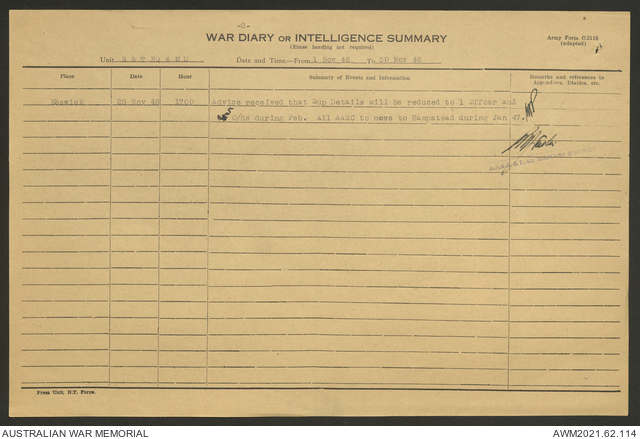 -2-
WAR DIARY OR INTELLIGENCE SUMMARY
(Erase heading not required)
Army Form C.2118
(adapted)
Unit S & T HQ 4 MD Date and Time—From 1 Nov 46 To 30 Nov 46
Place Date Hour Summary of Events and Information Remarks and references to
Appendices, Diaries, etc.
Keswick 28 Nov 46 1700 Advice received that Sup Details will be reduced to 1 Officer and
5 O/Rs during Feb. All AASC to move to Hampstead during Jan 47.
Press Unit, N.T. Force.
AUSTRALIAN WAR MEMORIAL
AWM2021.62.114